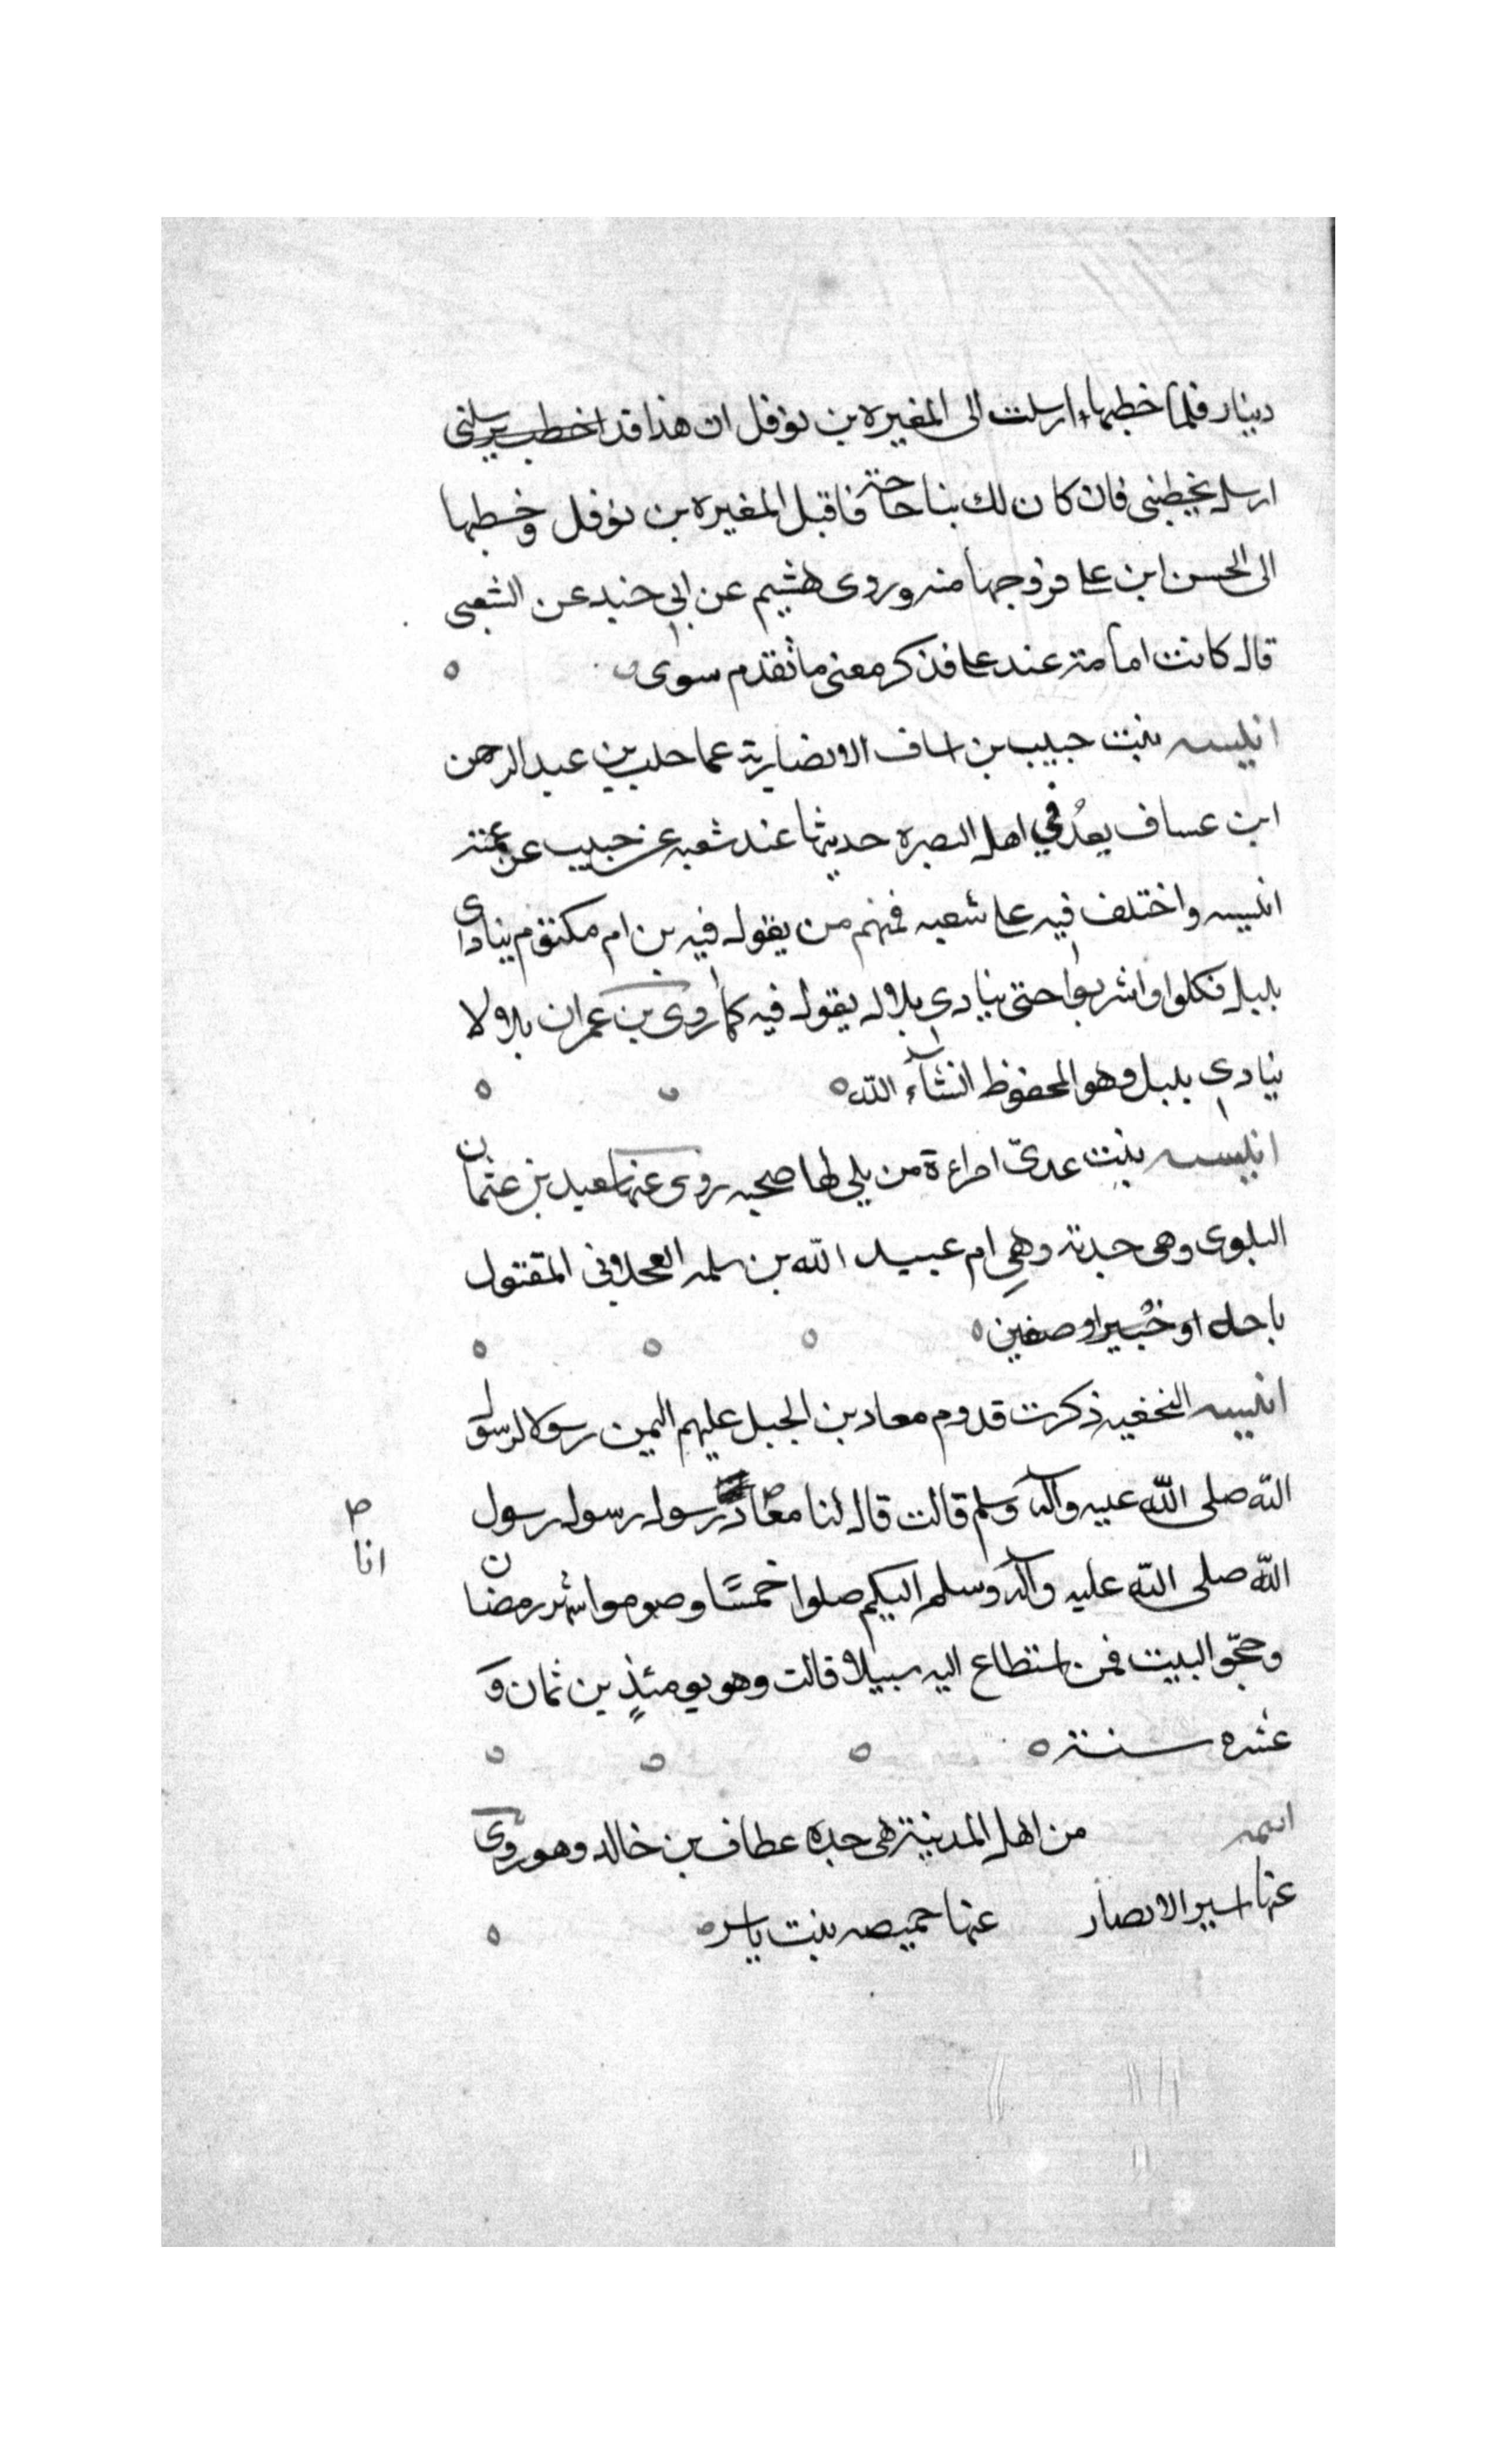 دينار فلما خطبها ارسلت الى المغيره بن نوفل ان هذا قد اخطب يرسلني
ارسل يخطبني فان كان لك بنا حاجة فاقبل المغيره بن نوفل وخطبها
الى الحسن ابن على فزوجها منه وروى هشيم عن ابى خنيد عن الشعبى
قال كانت امامة عند على فذكر معنى ما تقدم سوى
انيسه بنت حبيب بن اساف الانصارية عما حلب بن عبد الرحمن
ابن عساف يعدُ في اهل البصره حديثها عند شعبه عن خبيب عن عمته
انيسه واختلف فيه على شعبه فمنهم من يقول فيه بن ام مكتوم ينادى
بليل فكلوا واشربوا حتى ينادي بلال يقول فيه كما روى بن عمران بلالا
ينادي بليل وهو المحفوظ انشآء الله
انيسه بنت عدىّ امراءة من بلي لها صحبه روى عنها سعيد بن عثمان
البلوى وهى جدته وهي ام عبيد الله بن سلمه العجلانى المقتول
باحل او خيبر او صفين
انيسه النخعيه ذكرت قدوم معاد بن الجبل عليهم اليمن رسولا لرسول
الله صلى الله عيه وآله وسلم قالت قال لنا معاذ رسول رسول رسول
انا
الله صلى الله عليه وآله وسلم اليكم صلوا خمسًا وصوموا شهر رمضان
وحجّو البيت فمن استطاع اليه سبيلا قالت وهو يومئذٍ بن ثمان و
عشره سنة
من اهل المدينة هى جده عطاف بن خالد وهو روى
عنها اسير الانصار عنها حميصه بنت ياسر